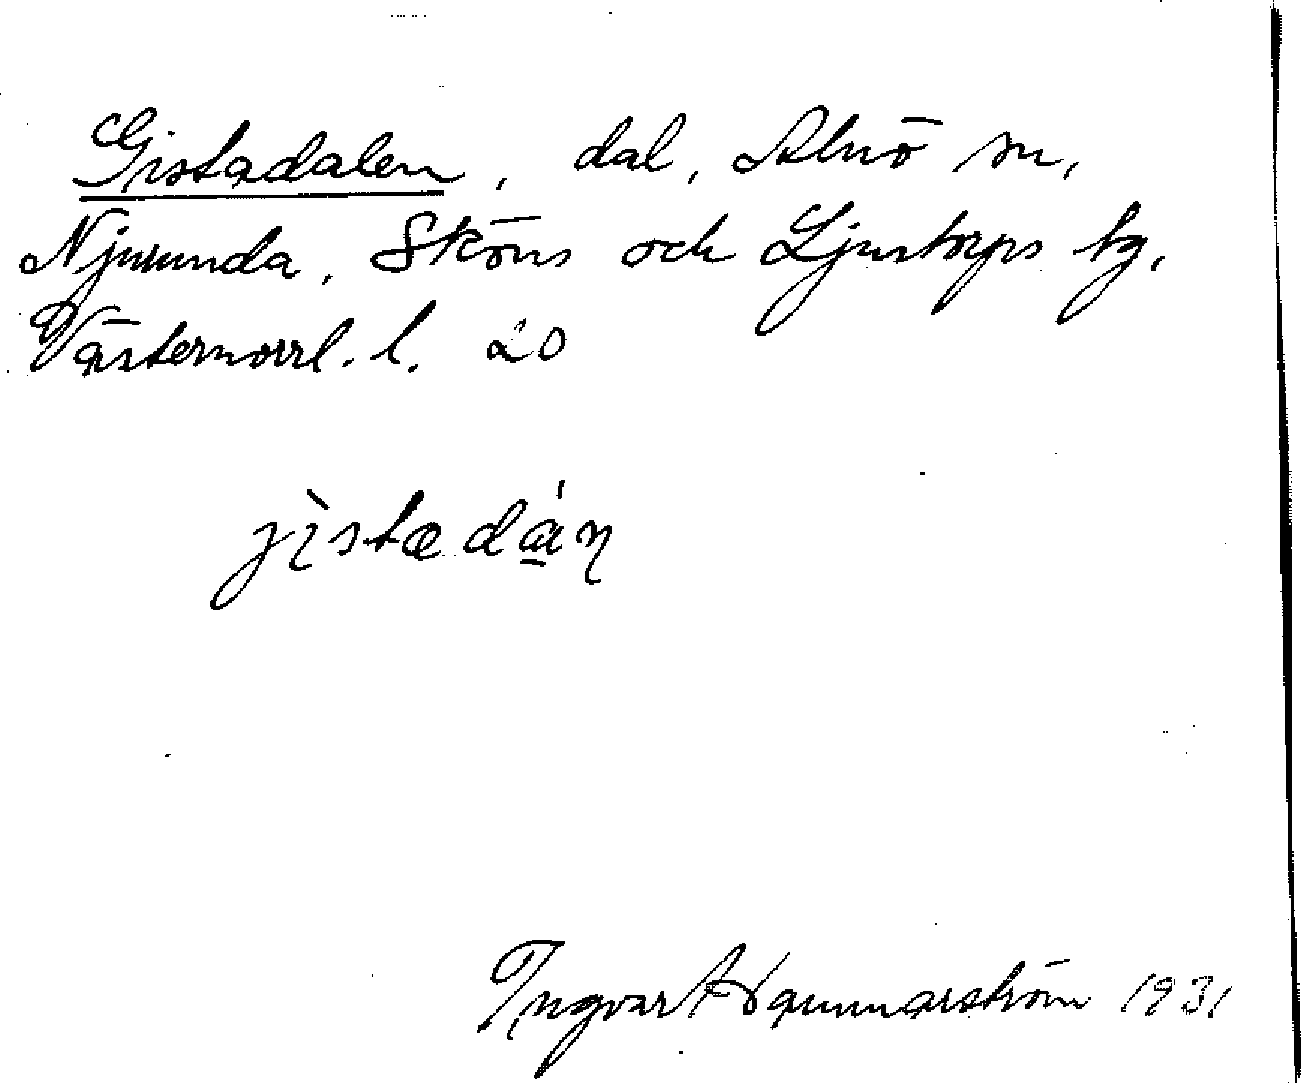 Gistadalen, dal, Alnö sn,
Njurunda, Sköns och Ljustorps tg,
Västernorrl. l. 20
jìstadán
Ingvar Hammarström 1931